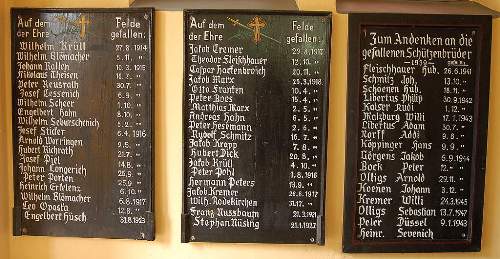 Auf dem Felde
der Ehre gefallen:
Wilhelm Krüll 27.8.1914
Wilhelm Blömacher 5.11. "
Johann Kallen 10.3.1915
Nikolaus Theisen 18.7. "
Peter Neusrath 30.7. "
Josef Lessenich 6.9. "
Wilhelm Scheer 1.10. "
Engelbert Hahn 8.10. "
Wilhelm Seburschenich 5.2. "
Josef Sticker 6.4.1916
Arnold Weringen 9.5. "
Hubert Richrath 21.7. "
Josef Piel 14.8. "
Johann Longerich
Peter Porten 25.9. "
Heinrich Erfelenz 25. "
Wilhelm Blömacher 6.8.1917
Leo Oposta 12.8. "
Engelbert Hüsch 31.8.1923
Auf dem Felde
der Ehre gefallen:
Jakob Cremer 29.8.1917
Theodor Fleischhauer 12.10. "
Caspar Hackenbroich 20.11. "
Jakob Marx 23.3.1918
Otto Franken 10.4. "
Peter Roes 15.4. "
Matthias Marx 2.5. "
Andreas Hahn 6.5. "
Peter Hesemann 2.6. "
Rudolf Schmitz 16.7. "
Jakob Krapp 7.8. "
Hubert Dick 20.8. "
Jakob Krüll 4.10. "
Peter Pohl 1.8.1916
Hermann Peters 13.8. "
Jakob Kremer 28.8.1917
Wilh. Rodekirchen 31.12. "
Franz Nussbaum 21.3.1921
Stephan Rüsing 21.1.1927
Zum Andenken an die
gefallenen Schützenbrüder
Fleischhauer Hub. 26.6.1941
Schmitz Joh. 13.12. "
Schoenen Hub. 18.11. "
Libertus Philip 30.9.1942
Kaiser Rudi 1.12. "
Malzburg Willi 17.1.1943
Libertus Adam 30.7. "
Korff Addi 9.8. "
Köppinger Hans 9.9. "
Görgens Jakob 5.9.1944
Bock Peter 12. "
Olligs Arnold 29.11. "
Koenen Johann 3.12. "
Kremer Willi 24.3.1945
Olligs Sebastian 13.7.1947
Peter Düssel 9.1.1943
Heinr. Sevenich